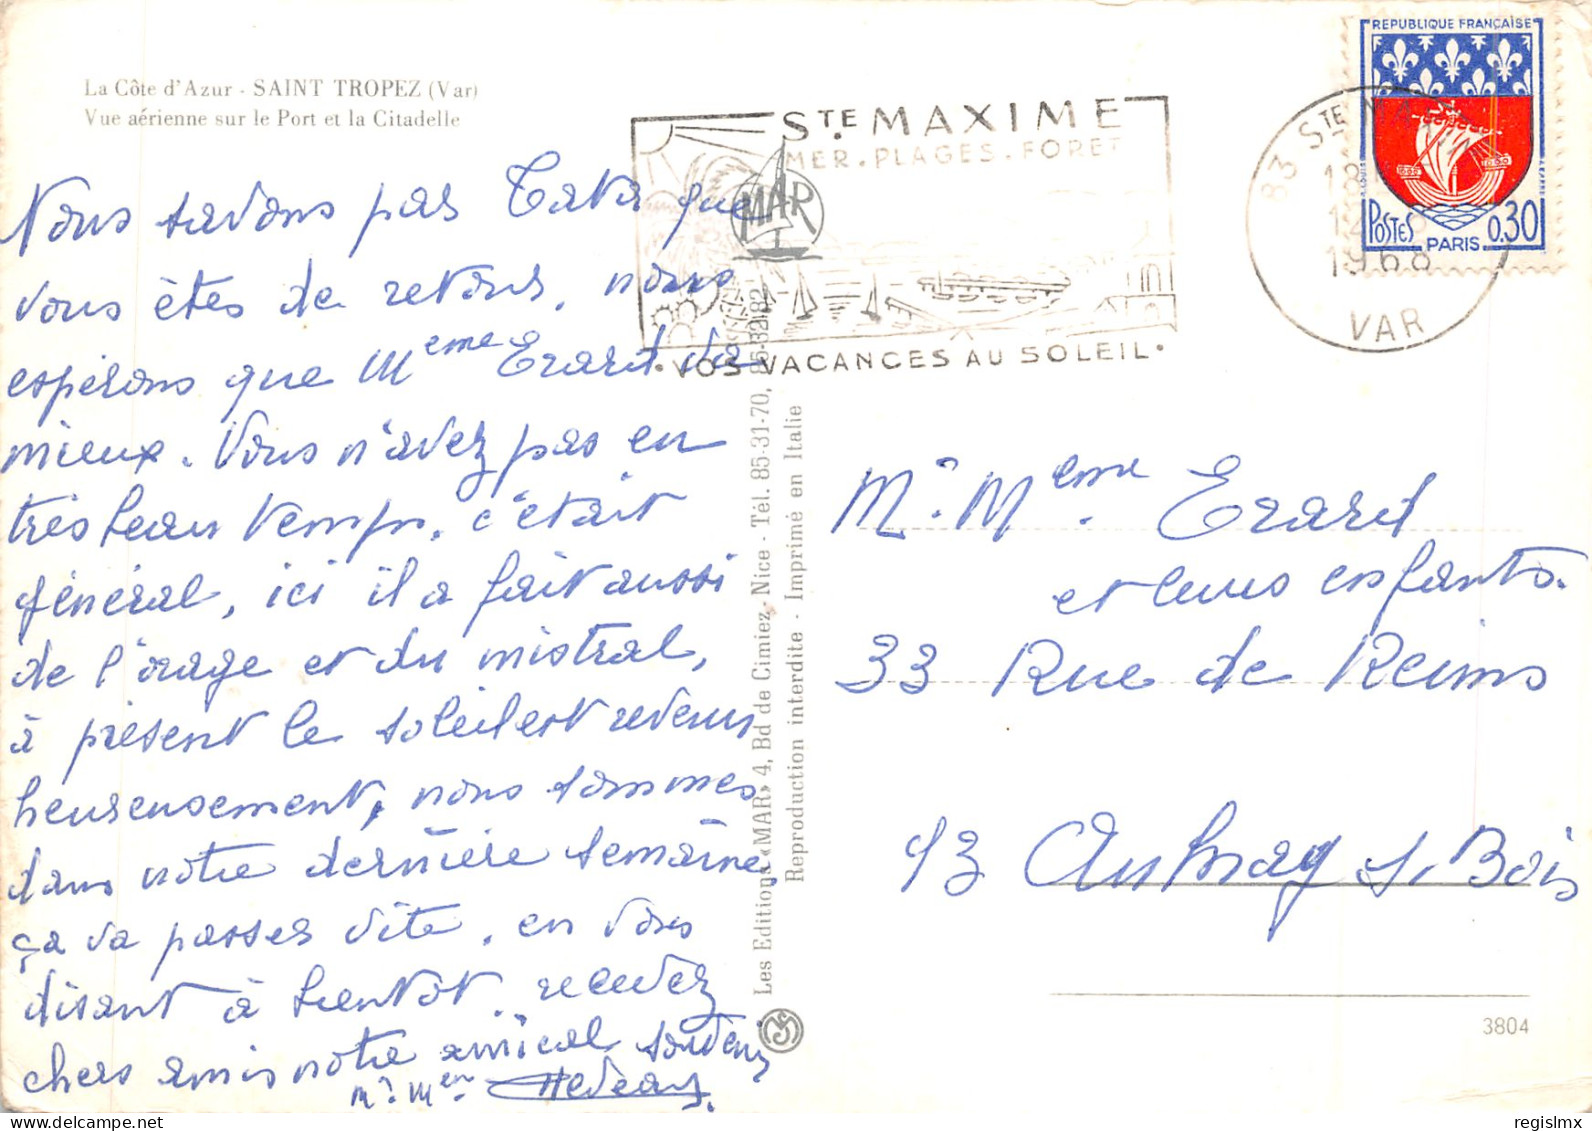 La Côte d'Azur - SAINT TROPEZ (Var)
Vue aérienne sur le Port et la Citadelle
Nous savons pas que
vous êtes de retour, nous
espérons que Meme Erard va
mieux. Vous n'avez pas eu
très beau temps, c'était
général, ici il a fait aussi
de l'orage et du mistral,
à présent le soleil est revenu
heureusement, nous sommes
dans notre dernière semaine,
ça va passer vite. en vous
disant à bientôt recevez
chers amis notre amical souvenir
Mr. Men.
STE. MAXIME
MER. PLAGES. FORET
MAR
• VOS VACANCES AU SOLEIL •
83 STE MAXIME
18H
1968
VAR
REPUBLIQUE FRANÇAISE
POSTES PARIS 0,30
Les Editions «MAR» 4, Bd de Cimiez - Nice - Tél. 85-31-70, 85-32-82
Reproduction interdite - Imprimé en Italie
Mr. Meme. Erard
et leurs enfants.
33 Rue de Reims
93 Aulnay s. Bois
3804
regislmx
delcampe.net